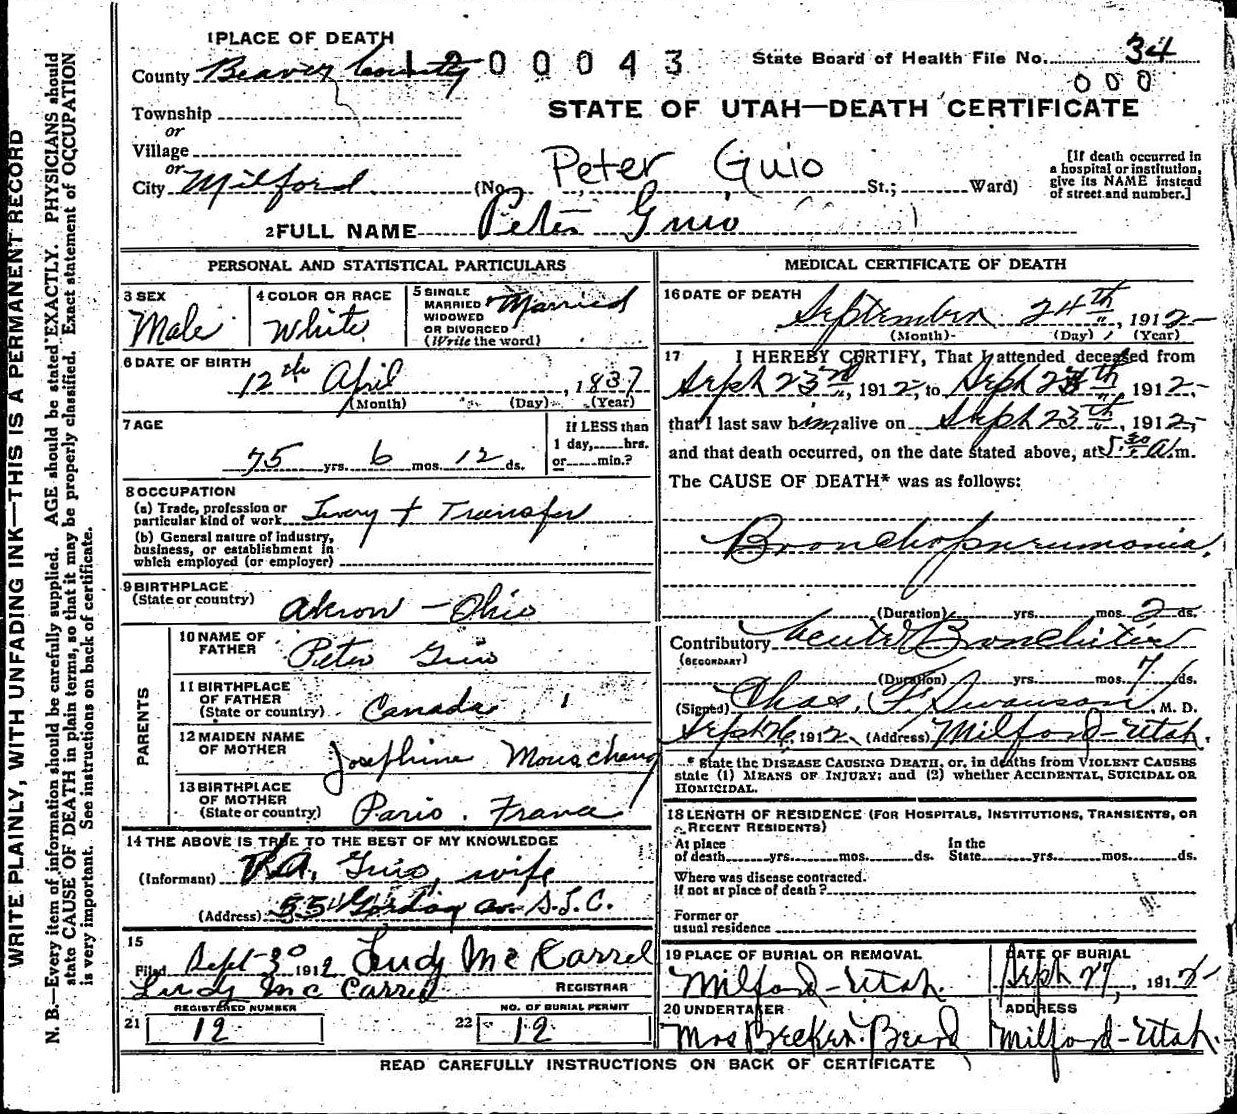 1 PLACE OF DEATH
County Beaver County 1200043 State Board of Health File No. 34
000
Township
or
Village
or
City Milford (No. St.; Ward)
STATE OF UTAH—DEATH CERTIFICATE
Peter Guio
[If death occurred in
a hospital or institution,
give its NAME instead
of street and number.]
2 FULL NAME Peter Guio
PERSONAL AND STATISTICAL PARTICULARS
3 SEX
Male
4 COLOR OR RACE
White
5 SINGLE
MARRIED
WIDOWED
OR DIVORCED
(Write the word)
Married
6 DATE OF BIRTH
12th April, 1837
(Month) (Day) (Year)
7 AGE
75 yrs. 6 mos. 12 ds.
If LESS than
1 day, hrs.
or min.?
8 OCCUPATION
(a) Trade, profession or
particular kind of work + Transfer
(b) General nature of industry,
business, or establishment in
which employed (or employer)
9 BIRTHPLACE
(State or country) Akron - Ohio
PARENTS
10 NAME OF
FATHER Peter Guio
11 BIRTHPLACE
OF FATHER
(State or country) Canada
12 MAIDEN NAME
OF MOTHER Josephine
13 BIRTHPLACE
OF MOTHER
(State or country) Paris. France
14 THE ABOVE IS TRUE TO THE BEST OF MY KNOWLEDGE
(Informant) Guio, wife
(Address) 554 av. S.L.C.
15
Filed Sept 30 1912 Lindy McCarrel
Lindy McCarrel REGISTRAR
REGISTERED NUMBER
21 12
NO. OF BURIAL PERMIT
22 12
MEDICAL CERTIFICATE OF DEATH
16 DATE OF DEATH
September 24th, 1912
(Month) (Day) (Year)
17 I HEREBY CERTIFY, That I attended deceased from
Sept 23rd, 1912, to Sept 24th 1912,
that I last saw him alive on Sept 23th, 1912,
and that death occurred, on the date stated above, at 5:30 A.m.
The CAUSE OF DEATH* was as follows:
Bronchopneumonia.
(Duration) yrs. mos. 2 ds.
Contributory Acute Bronchitis
(SECONDARY)
(Duration) yrs. mos. 7 ds.
(Signed) Chas. F. Swanson, M. D.
Sept 26, 1912 (Address) Milford-Utah.
* State the DISEASE CAUSING DEATH, or, in deaths from VIOLENT CAUSES
state (1) MEANS OF INJURY; and (2) whether ACCIDENTAL, SUICIDAL OR
HOMICIDAL.
18 LENGTH OF RESIDENCE (FOR HOSPITALS, INSTITUTIONS, TRANSIENTS, OR
RECENT RESIDENTS)
At place
of death yrs. mos. ds.
In the
State yrs. mos. ds.
Where was disease contracted.
If not at place of death?
Former or
usual residence
19 PLACE OF BURIAL OR REMOVAL
Milford-Utah.
DATE OF BURIAL
Sept 27, 1912
20 UNDERTAKER
Mrs Becker Beard
ADDRESS
Milford-Utah.
READ CAREFULLY INSTRUCTIONS ON BACK OF CERTIFICATE
WRITE PLAINLY, WITH UNFADING INK—THIS IS A PERMANENT RECORD
N. B.—Every item of information should be carefully supplied. AGE should be stated EXACTLY. PHYSICIANS should
state CAUSE OF DEATH in plain terms, so that it may be properly classified. Exact statement of OCCUPATION
is very important. See instructions on back of certificate.